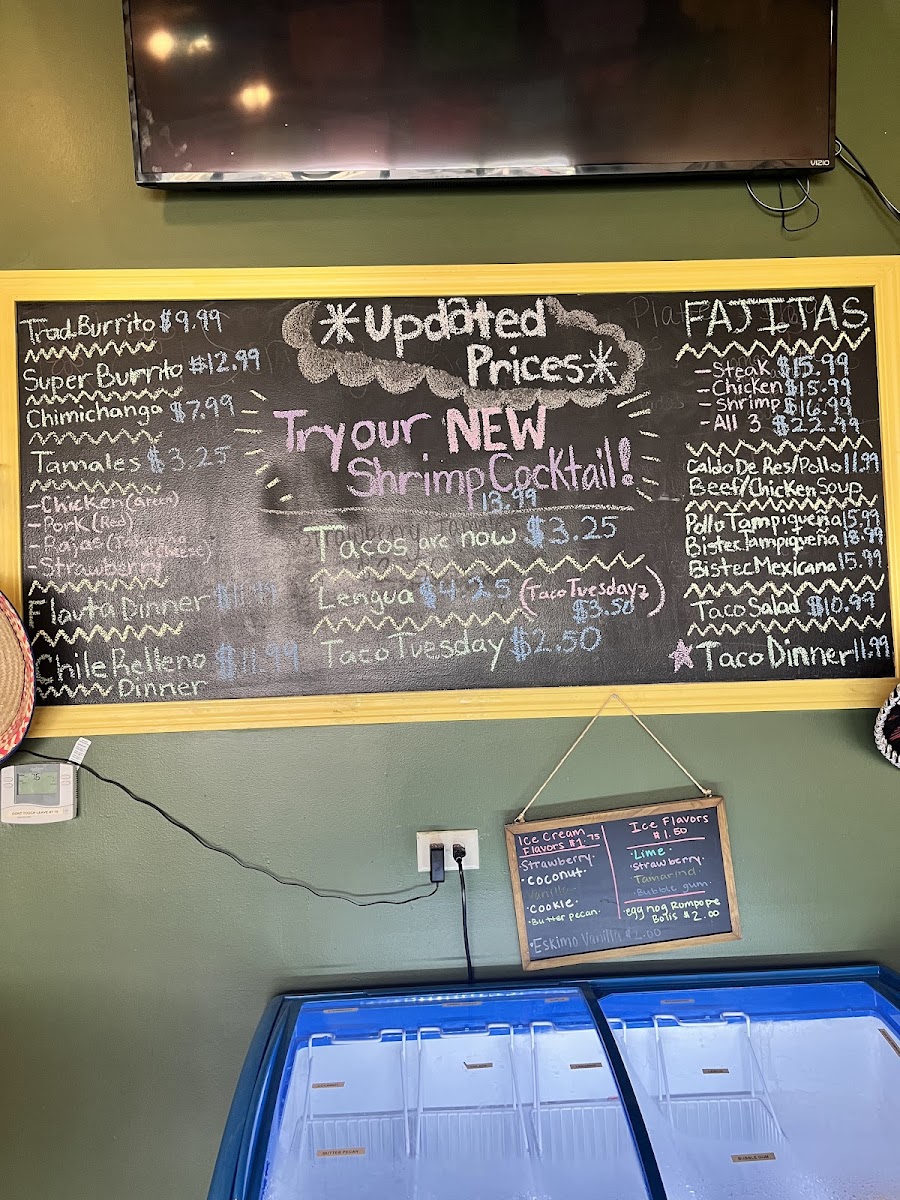 VIZIO
Trad. Burrito $9.99
Super Burrito $12.99
Chimichanga $7.99
Tamales $3.25
-Chicken (Green)
-Pork (Red)
-Rajas (
& Cheese)
-Strawberry
Flauta Dinner
Chile Relleno $11.99
Dinner
*Updated
Prices*
Try our NEW
Shrimp Cocktail!
13.99
Tacos are now $3.25
Lengua $4.25 (Taco Tuesday
$3.50)
Taco Tuesday $2.50
FAJITAS
-Steak $15.99
-Chicken $15.99
-Shrimp $16.99
-All 3 $22.99
Caldo De Res/Pollo 11.99
Beef/Chicken Soup
Pollo Tampiqueña 15.99
Bistec Tampiqueña 18.99
Bistec Mexicana 15.99
Taco Salad $10.99
Taco Dinner 11.99
Ice Cream
Flavors $1.75
·Strawberry·
·Coconut·
Vanilla
·Cookie·
·Butter pecan·
·Eskimo Vanilla $2.00
Ice Flavors
$1.50
·Lime·
·Strawberry·
Tamarind
·Bubble gum·
·egg nog Rompope
Bolis $2.00
BUTTER PECAN
BUBBLE GUM